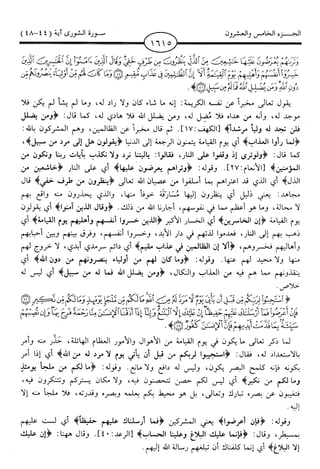 الجزء الخامس والعشرون
١٦١٥
سورة الشورى آية (٤٤-٤٨)
وَتَرَىٰهُمْ يُعْرَضُونَ عَلَيْهَا خَٰشِعِينَ مِنَ ٱلذُّلِّ يَنظُرُونَ مِن طَرْفٍ خَفِىٍّ وَقَالَ ٱلَّذِينَ ءَامَنُوٓا۟ إِنَّ ٱلْخَٰسِرِينَ ٱلَّذِينَ
خَسِرُوٓا۟ أَنفُسَهُمْ وَأَهْلِيهِمْ يَوْمَ ٱلْقِيَٰمَةِ أَلَآ إِنَّ ٱلظَّٰلِمِينَ فِى عَذَابٍ مُّقِيمٍ وَمَا كَانَ لَهُم مِّنْ أَوْلِيَآءَ يَنصُرُونَهُم مِّن
دُونِ ٱللَّهِ وَمَن يُضْلِلِ ٱللَّهُ فَمَا لَهُۥ مِن سَبِيلٍ
يقول تعالى مخبراً عن نفسه الكريمة: إنه ما شاء كان ولا راد له، وما لم يشأ لم يكن فلا
موجد له، وأنه من هداه فلا مُضل له، ومن يضلل الله فلا هادي له، كما قال: ﴿ومن يضلل
فلن تجد له ولياً مرشداً﴾ [الكهف: ١٧]. ثم قال مخبراً عن الظالمين، وهم المشركون بالله:
﴿لما رأوا العذاب﴾ أي يوم القيامة يتمنون الرجعة إلى الدنيا ﴿يقولون هل إلى مرد من سبيل﴾،
كما قال: ﴿ولو ترى إذ وقفوا على النار، فقالوا: ياليتنا نرد ولا نكذب بآيات ربنا ونكون من
المؤمنين﴾ [الأنعام: ٢٧]. وقوله: ﴿وتراهم يعرضون عليها﴾ أي على النار ﴿خاشعين من
الذل﴾ أي الذي قد اعتراهم بما أسلفوا من عصيان الله تعالى ﴿ينظرون من طرف خفي﴾ قال
مجاهد: يعني ذليل أي ينظرون إليها مُسَارقة خوفاً منها، والذي يحذرون منه واقع بهم
لا محالة، وما هو أعظم مما في نفوسهم، أجارنا الله من ذلك. ﴿وقال الذين آمنوا﴾ أي يقولون
يوم القيامة ﴿إن الخاسرين﴾ أي الخسار الأكبر ﴿الذين خسروا أنفسهم وأهليهم يوم القيامة﴾ أي
ذهب بهم إلى النار، فعدموا لذتهم في دار الأبد، وخسروا أنفسهم، وفرق بينهم وبين أحبابهم
وأهاليهم فخسروهم، ﴿ألا إن الظالمين في عذاب مقيم﴾ أي دائم سرمدي أبدي، لا خروج لهم
منها ولا محيد لهم عنها. وقوله: ﴿وما كان لهم من أولياء ينصرونهم من دون الله﴾ أي
ينقذونهم مما هم فيه من العذاب والنكال، ﴿ومن يضلل الله فما له من سبيل﴾ أي ليس له
خلاص.
ٱسْتَجِيبُوا۟ لِرَبِّكُم مِّن قَبْلِ أَن يَأْتِىَ يَوْمٌ لَّا مَرَدَّ لَهُۥ مِنَ ٱللَّهِ مَا لَكُم مِّن مَّلْجَإٍ يَوْمَئِذٍ وَمَا لَكُم مِّن نَّكِيرٍ
فَإِنْ أَعْرَضُوا۟ فَمَآ أَرْسَلْنَٰكَ عَلَيْهِمْ حَفِيظًا إِنْ عَلَيْكَ إِلَّا ٱلْبَلَٰغُ وَإِنَّآ إِذَآ أَذَقْنَا ٱلْإِنسَٰنَ مِنَّا رَحْمَةً فَرِحَ بِهَا وَإِن تُصِبْهُمْ
سَيِّئَةٌۢ بِمَا قَدَّمَتْ أَيْدِيهِمْ فَإِنَّ ٱلْإِنسَٰنَ كَفُورٌ
لما ذكر تعالى ما يكون في يوم القيامة من الأهوال والأمور العظام الهائلة، حذّر منه وأمر
بالاستعداد له، فقال: ﴿استجيبوا لربكم من قبل أن يأتي يوم لا مرد له من الله﴾ أي إذا أمر
بكونه فإنه كلمح البصر يكون، وليس له دافع ولا مانع. وقوله: ﴿ما لكم من ملجأ يومئذٍ
وما لكم من نكير﴾ أي ليس لكم حصن تتحصنون فيه، ولا مكان يستركم وتتنكرون فيه،
فتغيبون عن بصره تبارك وتعالى، بل هو محيط بكم بعلمه وبصره وقدرته، فلا ملجأ منه إلا
إليه.
وقوله: ﴿فإن أعرضوا﴾ يعني المشركين ﴿فما أرسلناك عليهم حفيظاً﴾ أي لست عليهم
بمسيطر، وقال: ﴿فإنما عليك البلاغ وعلينا الحساب﴾ [الرعد: ٤٠]. وقال ههنا: ﴿إن عليك
إلا البلاغ﴾ أي إنما كلفناك أن تبلغهم رسالة الله إليهم.